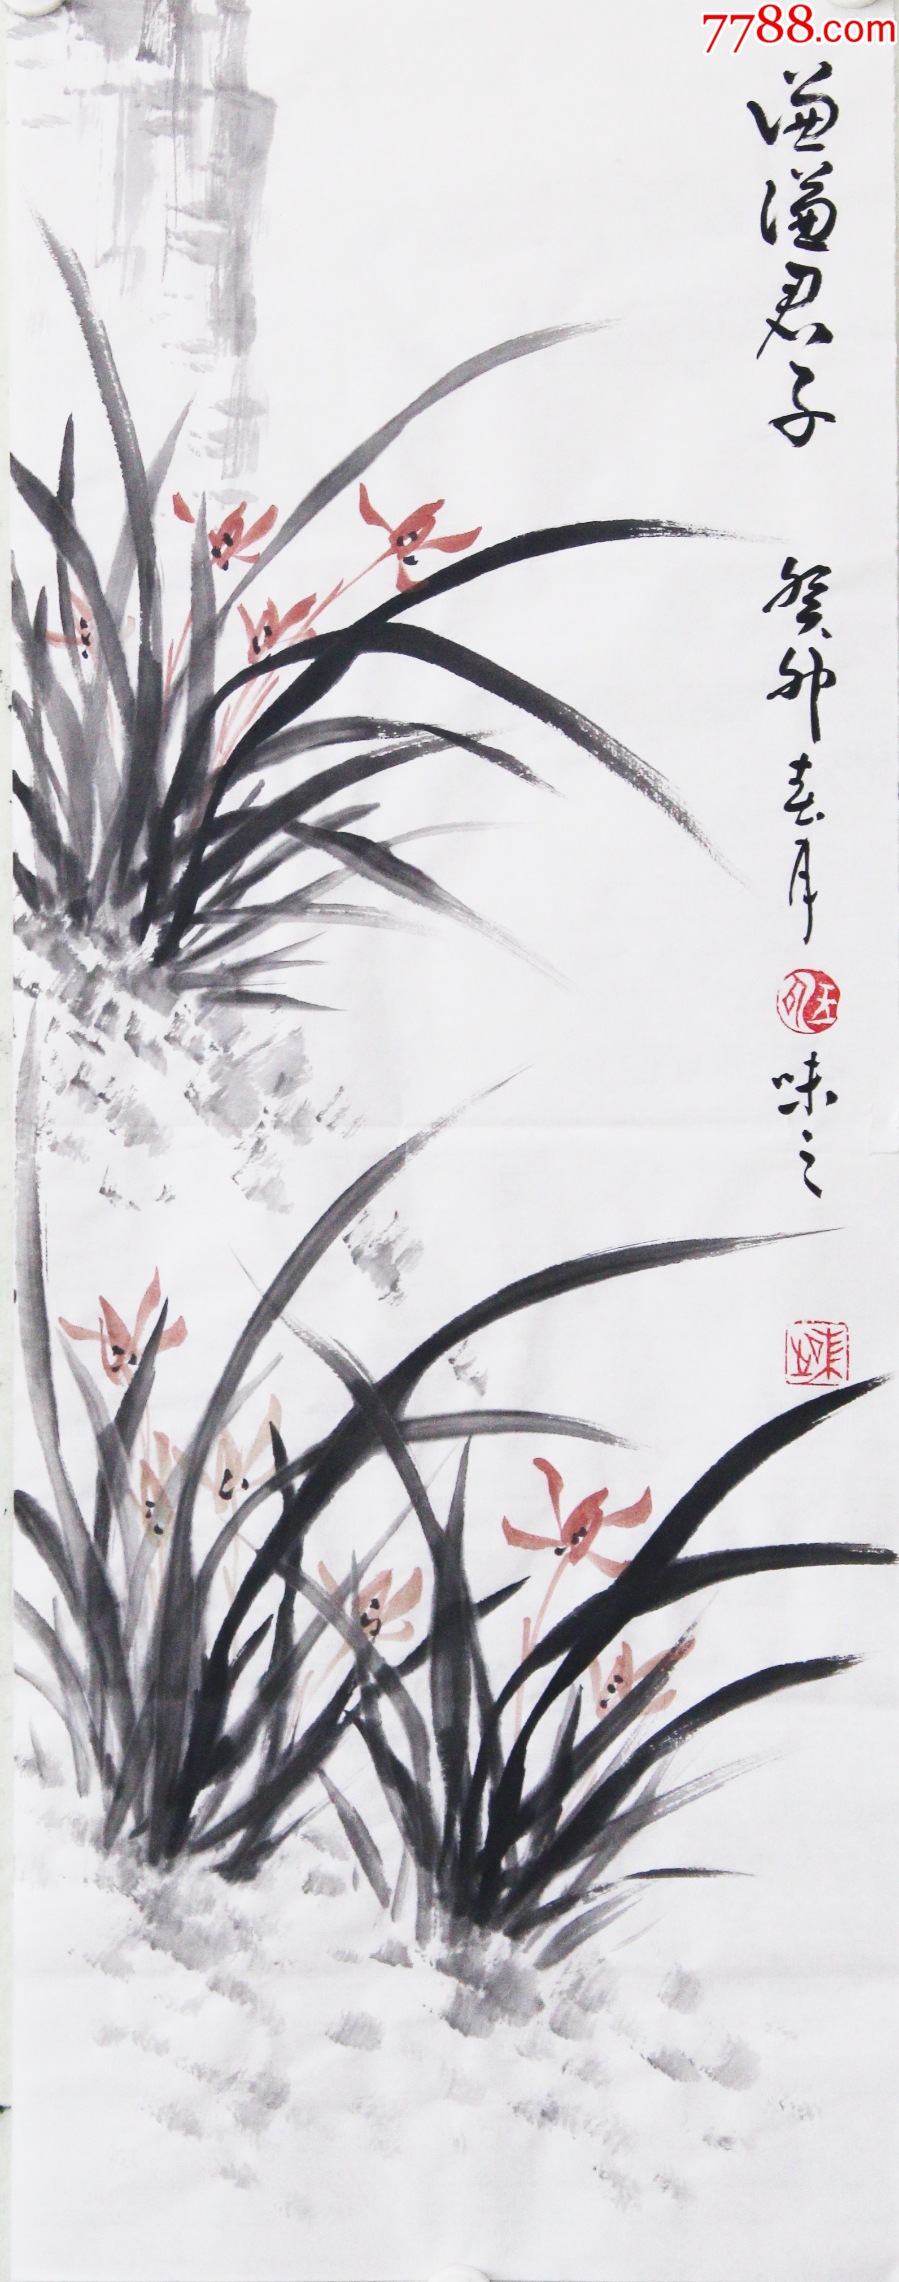 7788.com
谦谦君子
癸卯春月
味之